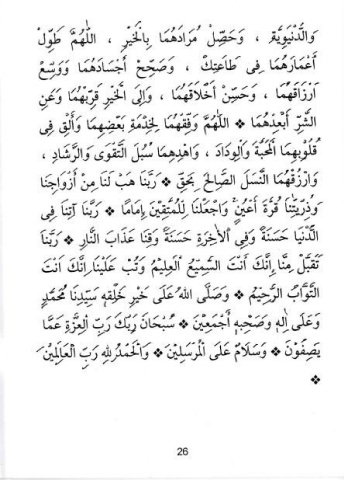 وَالدُّنْيَوِيَّةِ ، وَحَصِّلْ مُرَادَهُمَا بِالْخَيْرِ ، اَللّٰهُمَّ طَوِّلْ
أَعْمَارَهُمَا فِى طَاعَتِكَ ، وَصَحِّحْ أَجْسَادَهُمَا وَوَسِّعْ
اَرْزَاقَهُمَا ، وَحَسِّنْ أَخْلَاقَهُمَا ، وَاِلَى الْخَيْرِ قَرِّبْهُمَا وَعَنِ
الشَّرِّ أَبْعِدْهُمَا ❖ اَللّٰهُمَّ وَفِّقْهُمَا لِخِدْمَةِ بَعْضِهِمَا وَأَلْقِ فِى
قُلُوْبِهِمَا الْمَحَبَّةَ وَالْوِدَادَ ، وَاهْدِهِمَا سُبُلَ التَّقْوَى وَالرَّشَادِ ،
وَارْزُقْهُمَا النَّسْلَ الصَّالِحَ بِحَقِّ ❖ رَبَّنَا هَبْ لَنَا مِنْ أَزْوَاجِنَا
وَذُرِّيّٰتِنَا قُرَّةَ أَعْيُنٍ وَاجْعَلْنَا لِلْمُتَّقِيْنَ اِمَامًا ❖ رَبَّنَا آتِنَا فِى
الدُّنْيَا حَسَنَةً وَفِي الْأخِرَةِ حَسَنَةً وَقِنَا عَذَابَ النَّارِ ❖ رَبَّنَا
تَقَبَّلْ مِنَّا إِنَّكَ أَنْتَ السَّمِيْعُ الْعَلِيْمُ وَتُبْ عَلَيْنَا إِنَّكَ أَنْتَ
التَّوَّابُ الرَّحِيْمُ ❖ وَصَلَّى اللهُ عَلَى خَيْرِ خَلْقِهِ سَيِّدِنَا مُحَمَّدٍ
وَعَلَى اٰلِهِ وَصَحْبِهِ أَجْمَعِيْنَ ❖ سُبْحَانَ رَبِّكَ رَبِّ الْعِزَّةِ عَمَّا
يَصِفُوْنَ ❖ وَسَلَامٌ عَلَى الْمُرْسَلِيْنَ ❖ وَالْحَمْدُ لِلّٰهِ رَبِّ الْعَالَمِيْنَ
❖
26